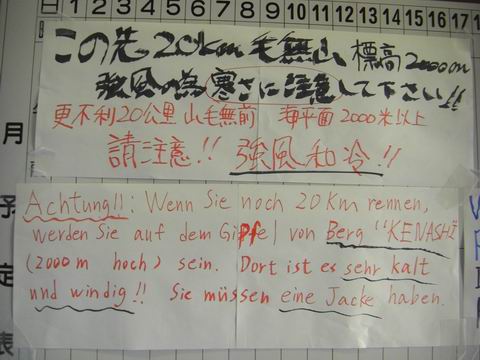 日 1 2 3 4 5 6 7 8 9 10 11 12 13 14 15 16 17
この先20km毛無山 標高2000m
強風の為寒さに注意して下さい!!
更不利20公里 山毛無前 海平面2000米以上
請注意!! 強風和冷!!
Achtung!!: Wenn Sie noch 20 Km rennen,
werden Sie auf dem Gipfel von Berg "KENASHI"
(2000m hoch) sein. Dort ist es sehr kalt
und windig!! Sie müssen eine Jacke haben.
月
予
定
表